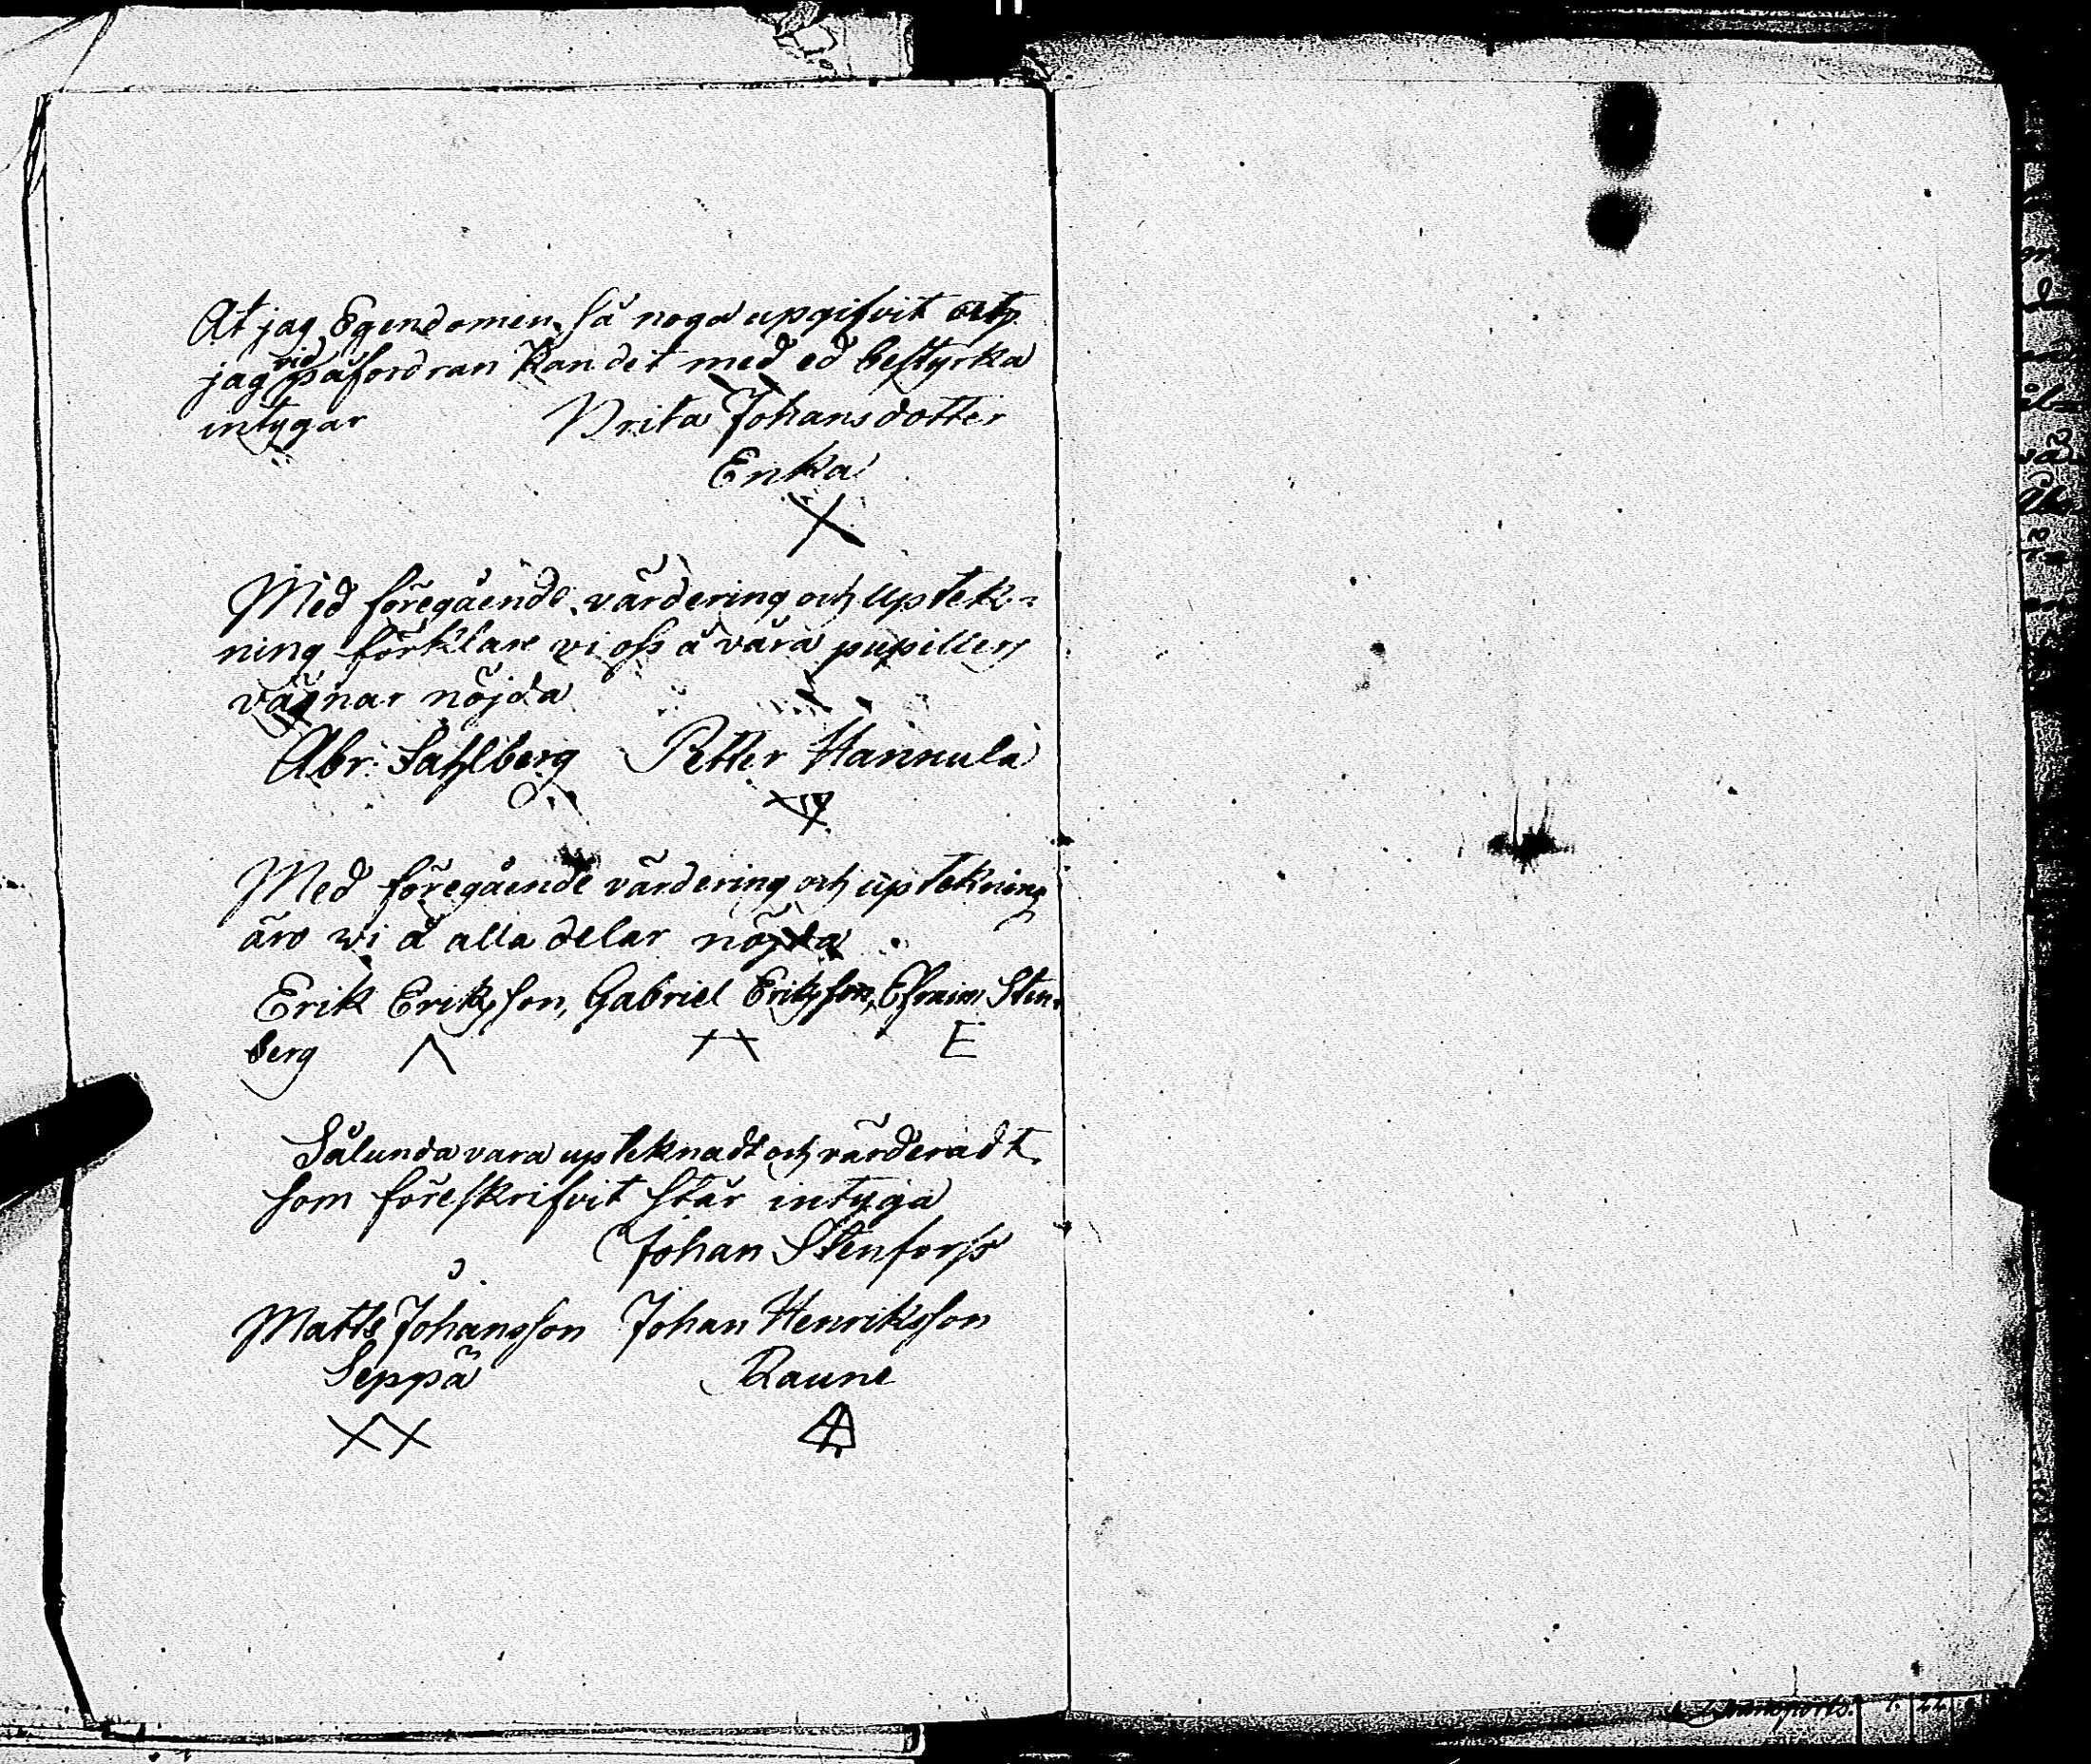 At jag Egendomen så noga upgifvit at
jag vid påfordran kan det med ed bestyrka
intygar Brita Johansdotter
Enka
X
Med föregående värdering och uptek-
ning förklare wi oss å våra pupillers
vägnar nöjda
Abr. Sahlberg Petter Hannula
Med föregående värdering och uptekning
äro wi å alla delar nöjda
Erik Eriksson, Gabriel Eriksson, Efraim Sten-
berg Λ XX E
Sålunda vara upteknadt och värderadt
som föreskrifvit står intyga
Johan Stenforss
Matts Johansson Johan Henriksson
Seppä Raune
XX
Transporto.